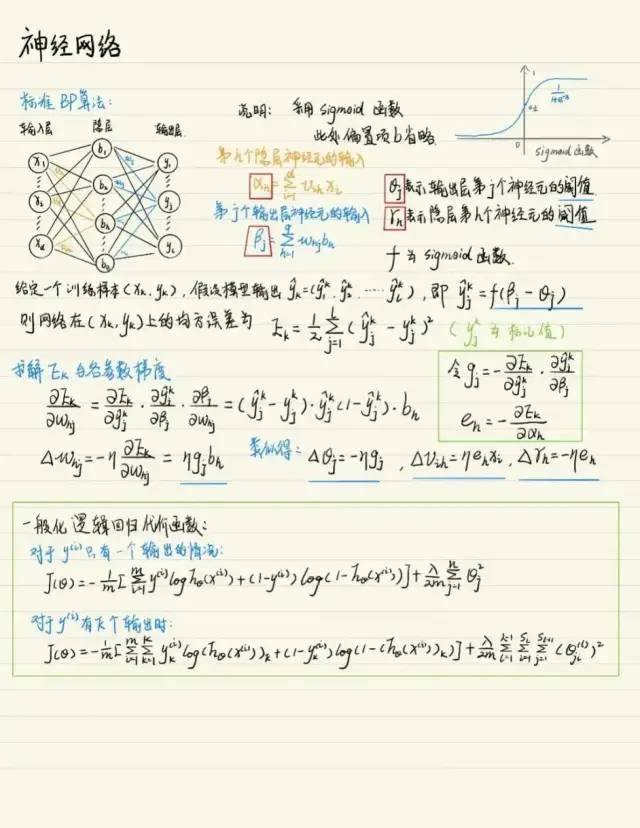 神经网络
标准 BP算法：
输入层 隐层 输出层
x₁ b₁ y₁
x₂ b₂ yⱼ
x_d b_h y_l
b_q
说明： 采用 sigmoid 函数
此处偏置项b省略
1
0.5
0
1/(1+e⁻ˣ)
sigmoid 函数
第h个隐层神经元的输入
α_h = Σ_{i=1}^{d} v_{ih} x_i
第j个输出层神经元的输入
β_j = Σ_{h=1}^{q} w_{hj} b_h
θ_j 表示输出层第j个神经元的阈值
γ_h 表示隐层第h个神经元的阈值
f 为 sigmoid 函数.
给定一个训练样本(x_k, y_k)，假设模型输出 ŷ_k=(ŷ₁ᵏ, ŷ₂ᵏ, ⋯⋯ ŷ_lᵏ)，即 ŷ_jᵏ = f(β_j − θ_j)
则网络在(x_k, y_k)上的均方误差为 E_k = 1/2 Σ_{j=1}^{l} (ŷ_jᵏ − y_jᵏ)² (y_jᵏ 为标记值)
求解 E_k 的各参数梯度
∂E_k/∂w_{hj} = ∂E_k/∂ŷ_jᵏ · ∂ŷ_jᵏ/∂β_j · ∂β_j/∂w_{hj} = (ŷ_jᵏ − y_jᵏ) · ŷ_jᵏ (1 − ŷ_jᵏ) · b_h
令 g_j = − ∂E_k/∂ŷ_jᵏ · ∂ŷ_jᵏ/∂β_j
e_h = − ∂E_k/∂α_h
Δw_{hj} = −η ∂E_k/∂w_{hj} = η g_j b_h 类似得： Δθ_j = −η g_j ，Δv_{ih} = η e_h x_i ，Δγ_h = −η e_h
一般化逻辑回归代价函数：
对于 y⁽ⁱ⁾ 只有一个输出的情况：
J(θ) = − 1/m [ Σ_{i=1}^{m} y⁽ⁱ⁾ log h_θ(x⁽ⁱ⁾) + (1 − y⁽ⁱ⁾) log(1 − h_θ(x⁽ⁱ⁾)) ] + λ/2m Σ_{j=1}^{n} θ_j²
对于 y⁽ⁱ⁾ 有K个输出时：
J(θ) = − 1/m [ Σ_{i=1}^{m} Σ_{k=1}^{K} y_k⁽ⁱ⁾ log(h_θ(x⁽ⁱ⁾))_k + (1 − y_k⁽ⁱ⁾) log(1 − (h_θ(x⁽ⁱ⁾))_k) ] + λ/2m Σ_{l=1}^{L-1} Σ_{i=1}^{S_l} Σ_{j=1}^{S_{l+1}} (θ_{ji}⁽ˡ⁾)²